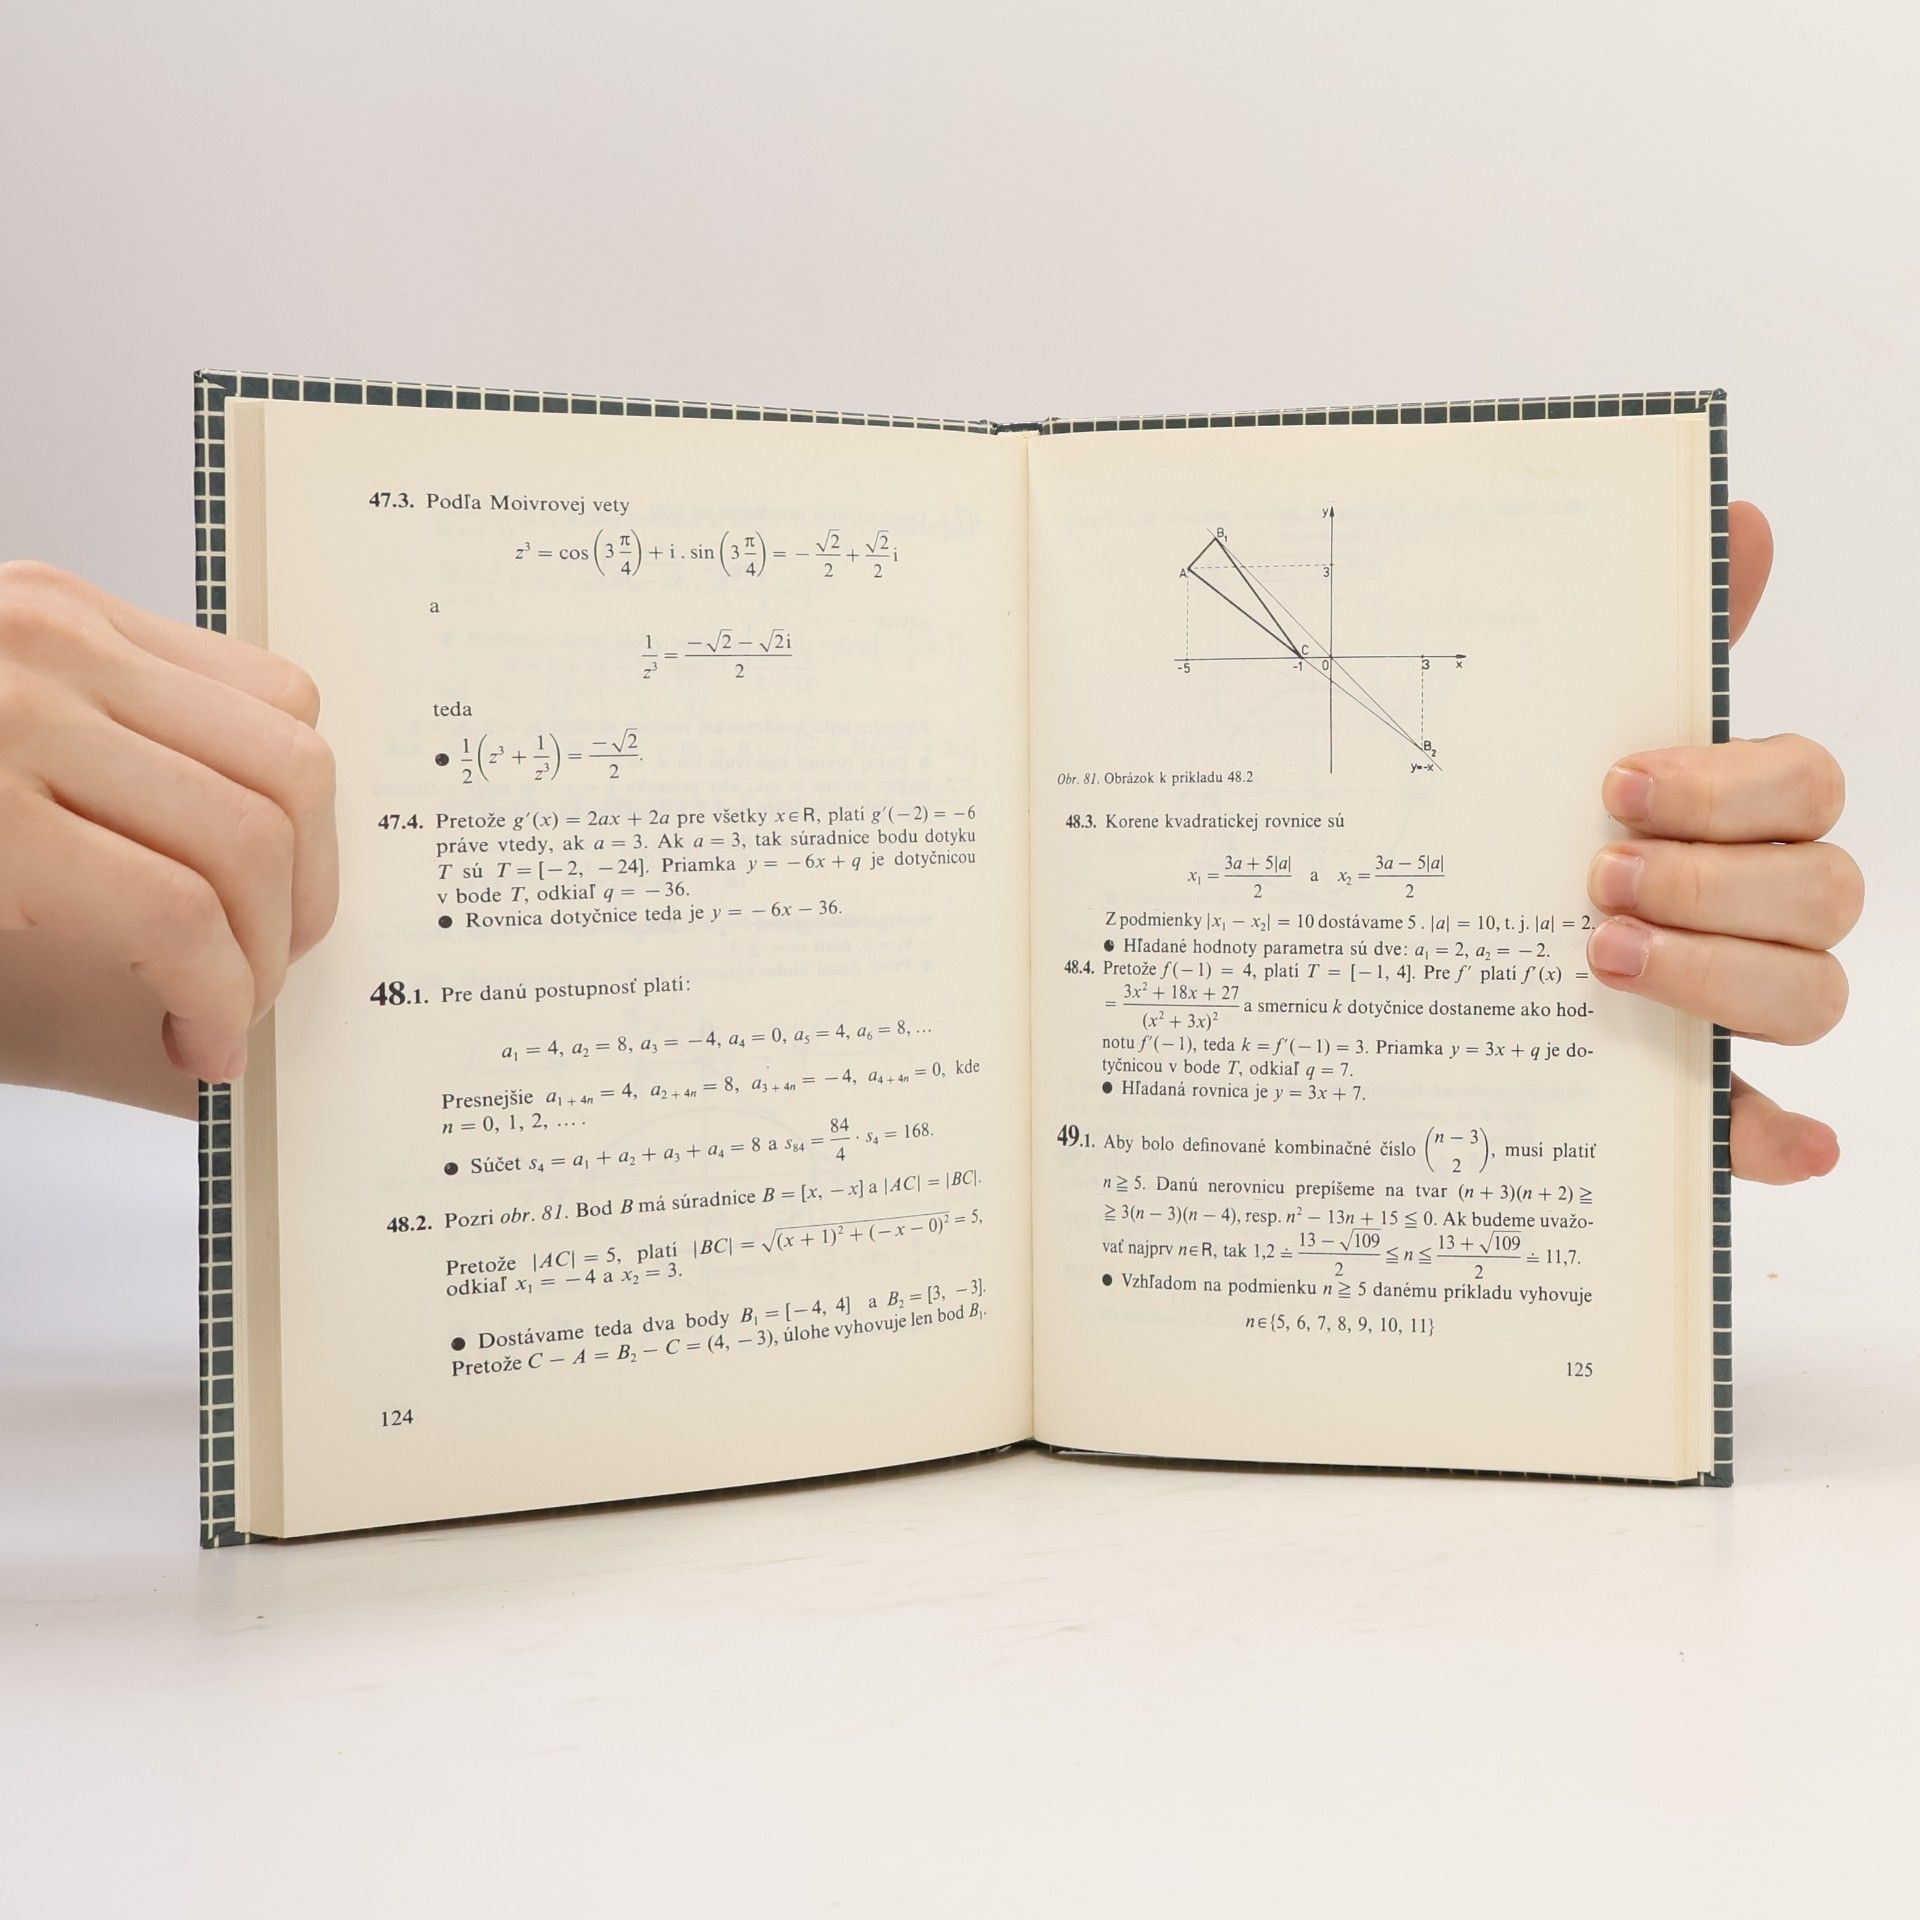 47.3. Podľa Moivrovej vety
z³ = cos (3 π/4) + i . sin (3 π/4) = − √2/2 + √2/2 i
a
1/z³ = (−√2 − √2i)/2
teda
● 1/2 (z³ + 1/z³) = −√2/2.
47.4. Pretože g′(x) = 2ax + 2a pre všetky x∈R, platí g′(−2) = −6
práve vtedy, ak a = 3. Ak a = 3, tak súradnice bodu dotyku
T sú T = [−2, −24]. Priamka y = −6x + q je dotyčnicou
v bode T, odkiaľ q = −36.
● Rovnica dotyčnice teda je y = −6x − 36.
48.1. Pre danú postupnosť platí:
a₁ = 4, a₂ = 8, a₃ = −4, a₄ = 0, a₅ = 4, a₆ = 8, ...
Presnejšie a₁₊₄ₙ = 4, a₂₊₄ₙ = 8, a₃₊₄ₙ = −4, a₄₊₄ₙ = 0, kde
n = 0, 1, 2, ... .
● Súčet s₄ = a₁ + a₂ + a₃ + a₄ = 8 a s₈₄ = 84/4 · s₄ = 168.
48.2. Pozri obr. 81. Bod B má súradnice B = [x, −x] a |AC| = |BC|.
Pretože |AC| = 5, platí |BC| = √((x + 1)² + (−x − 0)²) = 5,
odkiaľ x₁ = −4 a x₂ = 3.
● Dostávame teda dva body B₁ = [−4, 4] a B₂ = [3, −3].
Pretože C − A = B₂ − C = (4, −3), úlohe vyhovuje len bod B₁.
124
y
B₁
A
3
C
-5
-1
0
3
x
B₂
y=-x
Obr. 81. Obrázok k príkladu 48.2
48.3. Korene kvadratickej rovnice sú
x₁ = (3a + 5|a|)/2 a x₂ = (3a − 5|a|)/2
Z podmienky |x₁ − x₂| = 10 dostávame 5 . |a| = 10, t. j. |a| = 2.
● Hľadané hodnoty parametra sú dve: a₁ = 2, a₂ = −2.
48.4. Pretože f(−1) = 4, platí T = [−1, 4]. Pre f′ platí f′(x) =
= (3x² + 18x + 27)/(x² + 3x)² a smernicu k dotyčnice dostaneme ako hod-
notu f′(−1), teda k = f′(−1) = 3. Priamka y = 3x + q je do-
tyčnicou v bode T, odkiaľ q = 7.
● Hľadaná rovnica je y = 3x + 7.
49.1. Aby bolo definované kombinačné číslo (n − 3 2), musí platiť
n ≧ 5. Danú nerovnicu prepíšeme na tvar (n + 3)(n + 2) ≧
≧ 3(n − 3)(n − 4), resp. n² − 13n + 15 ≦ 0. Ak budeme uvažo-
vať najprv n∈R, tak 1,2 ≐ (13 − √109)/2 ≦ n ≦ (13 + √109)/2 ≐ 11,7.
● Vzhľadom na podmienku n ≧ 5 danému príkladu vyhovuje
n∈{5, 6, 7, 8, 9, 10, 11}
125